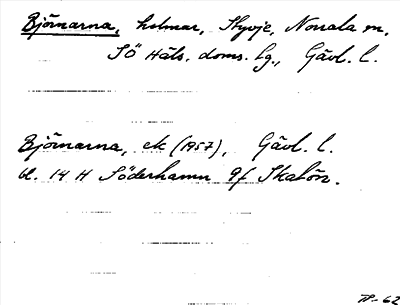 Björnarna, holmar, Styvje, Norrala sn,
SÖ Häls. doms. lg., Gävl. l.
Björnarna, ek (1957), Gävl. l.
bl. 14 H Söderhamn 9f Skatön.
-62